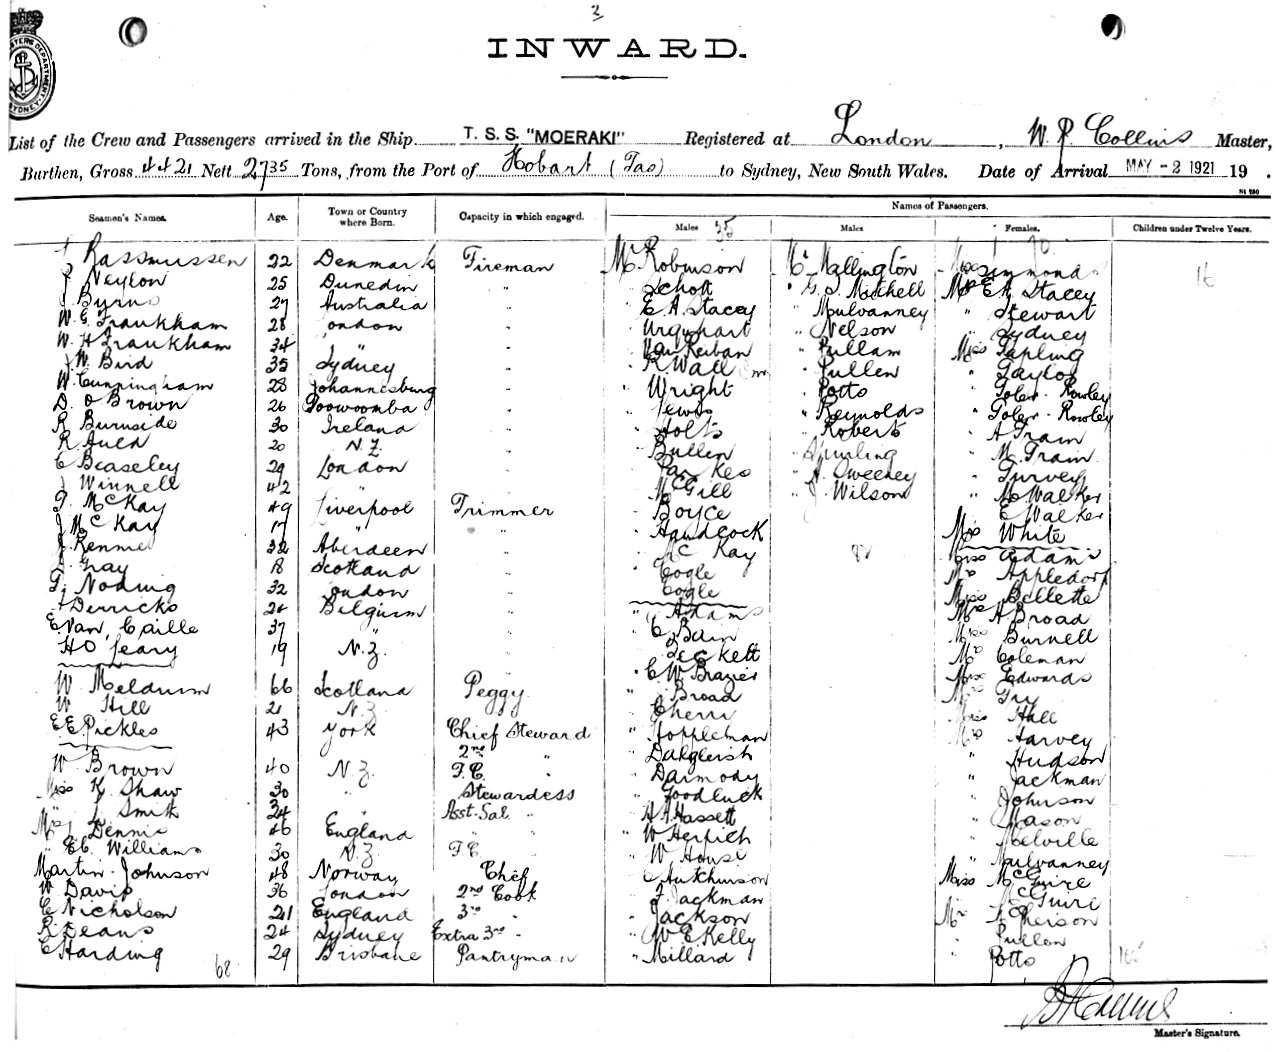 2
INWARD.
List of the Crew and Passengers arrived in the Ship T. S. S. "MOERAKI" Registered at London, W. P. Collins Master,
Burthen, Gross 4421 Nett 2735 Tons, from the Port of Hobart (Tas) to Sydney, New South Wales. Date of Arrival MAY -2 1921 19 .
Seamen's Names. Age. Town or Country where Born. Capacity in which engaged. Names of Passengers.
Males 35 Males Females. Children under Twelve Years.
Rasmussen 22 Denmark Fireman Mr Robinson Mr Mallington Miss Simmonds 16
J Neylon 25 Dunedin " " Schott " G. S. Mitchell Mrs E A Stacey
J Byrne 27 Australia " " E A. Stacey " Mulvanney " Stewart
W. G. Frankham 28 London " " Urquhart " Nelson " Sydney
W. H Frankham 34 " " " Pullam Miss Tapling
J W. Bird 35 Sydney " " R Wall " Pullen " Taylor
W. Cunningham 28 Johannesburg " " Wright " Potts " Toler-Rowley
D. O Brown 26 Toowoomba " " Lewis " Reynolds " Toler-Rowley
R Burnside 30 Ireland " " Holts " Roberts " A Train
R Auld 20 N. Z. " " Bullen " Spurling " M. Train
C Beaseley 29 London " " Parkes " A Sweeney " Turvey
J Winnell 42 " " " McGill " J. Wilson " M Walker
T. McKay 49 Liverpool Trimmer " Boyce " E Walker
J McKay 17 " " " Handcock Miss White
J. Rennie 32 Aberdeen " " McKay Miss Adams
J. Gray 18 Scotland " " Cogle Mrs Appledorf
T. Noding 32 London " " Cogle Miss Billette
Derricks 24 Belgium " " Adams Mrs A Broad
E. Van Caille 37 " " " C Bain Miss Burnell
H O'Leary 19 N. Z. " " Beckett Mrs Coleman
" C W Brazier Miss Edwards
W Meldrum 66 Scotland Peggy " Broad Mrs Fry
W Hill 21 N Z " Cherri Miss Hall
E E Pickles 43 York Chief Steward " Hoppleman Mrs Harvey
2nd " " Dalgleish " Hudson
W Brown 40 N. Z. F. C. " " Darmody " Jackman
Miss K. Shaw 30 " Stewardess " Goodluck " Johnson
" L Smith 34 Asst. Sal. " " H A Hassett " Mason
Dennis 46 England " W Herpich " Melville
" E C. Williams 30 N. Z. F C " " W House " Mulvanney
Martin Johnson 48 Norway Chef " C Hutchinson Miss McGuire
W Davis 36 London 2nd Cook " F. Jackman McGuire
C Nicholson 21 England 3rd " " Jackson Mrs McPherson
R Deans 24 Sydney Extra 3rd " " W E Kelly " Pullen
C Harding 68 29 Brisbane Pantryman " Millard " Potts
Master's Signature.